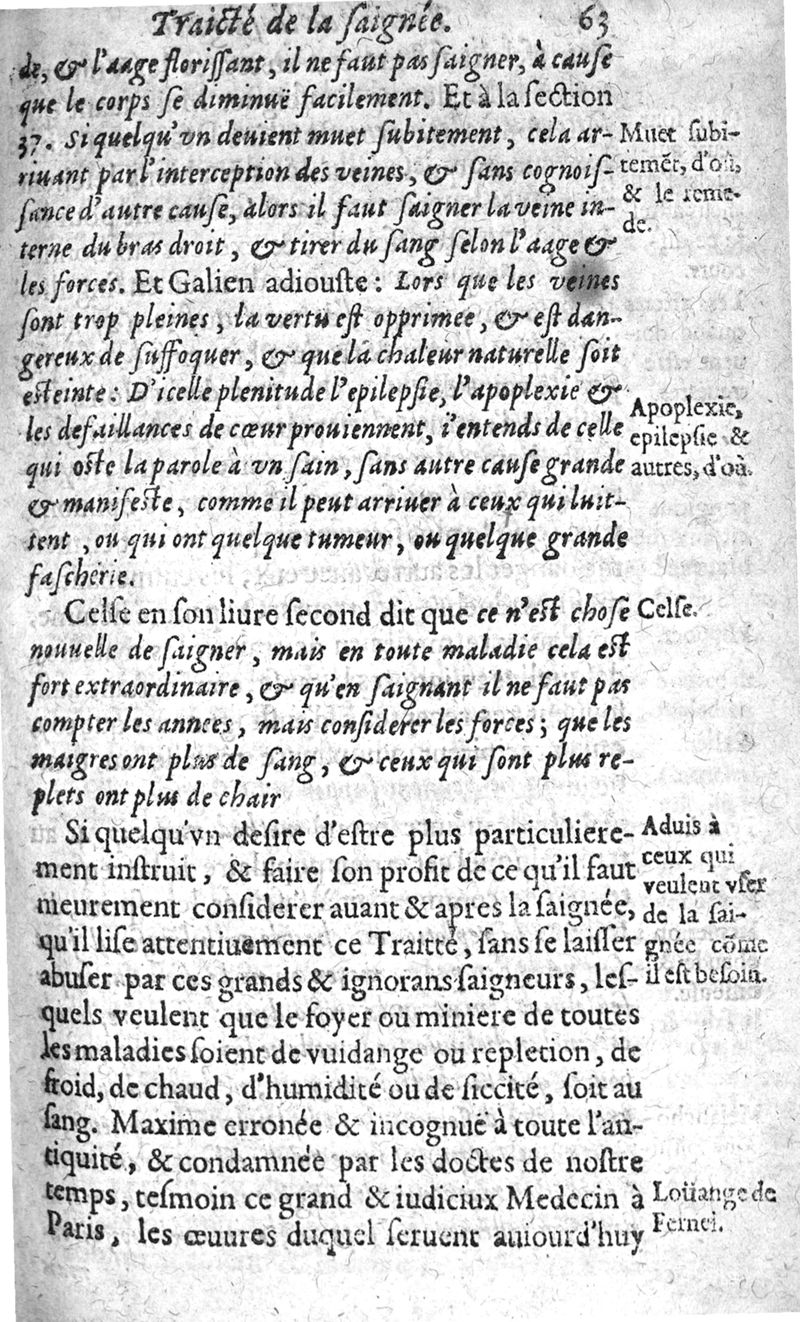 Traicté de la ſaignée. 63
de, & l'aage floriſſant, il ne faut pas ſaigner, à cauſe
que le corps ſe diminuë facilement. Et à la ſection
37. Si quelqu'vn deuient muet ſubitement, cela ar-
riuant par l'interception des veines, & ſans cognoiſ-
ſance d'autre cauſe, alors il faut ſaigner la veine in-
terne du bras droit, & tirer du ſang ſelon l'aage &
les forces. Et Galien adiouſte: Lors que les veines
ſont trop pleines, la vertu eſt opprimee, & eſt dan-
gereux de ſuffoquer, & que la chaleur naturelle ſoit
eſteinte: D'icelle plenitude l'epilepſie, l'apoplexie &
les defaillances de cœur prouiennent, i'entends de celle
qui oſte la parole à vn ſain, ſans autre cauſe grande
& manifeſte, comme il peut arriuer à ceux qui luit-
tent, ou qui ont quelque tumeur, ou quelque grande
faſcherie.
Muet ſubi-
temẽt, d'où,
& le reme-
de.
Apoplexie,
epilepſie &
autres, d'où.
Celſe en ſon liure ſecond dit que ce n'eſt choſe
nouuelle de ſaigner, mais en toute maladie cela eſt
fort extraordinaire, & qu'en ſaignant il ne faut pas
compter les annees, mais conſiderer les forces; que les
maigres ont plus de ſang, & ceux qui ſont plus re-
plets ont plus de chair
Celſe.
Si quelqu'vn deſire d'eſtre plus particuliere-
ment inſtruit, & faire ſon profit de ce qu'il faut
meurement conſiderer auant & apres la ſaignée,
qu'il liſe attentiuement ce Traitté, ſans ſe laiſſer
abuſer par ces grands & ignorans ſaigneurs, leſ-
quels veulent que le foyer ou miniere de toutes
les maladies ſoient de vuidange ou repletion, de
froid, de chaud, d'humidité ou de ſiccité, ſoit au
ſang. Maxime erronée & incognuë à toute l'an-
tiquité, & condamnée par les doctes de noſtre
temps, teſmoin ce grand & iudiciux Medecin à
Paris, les œuures duquel ſeruent auiourd'huy
Aduis à
ceux qui
veulent vſer
de la ſai-
gnée cõme
il eſt beſoin.
Loüange de
Fernel.